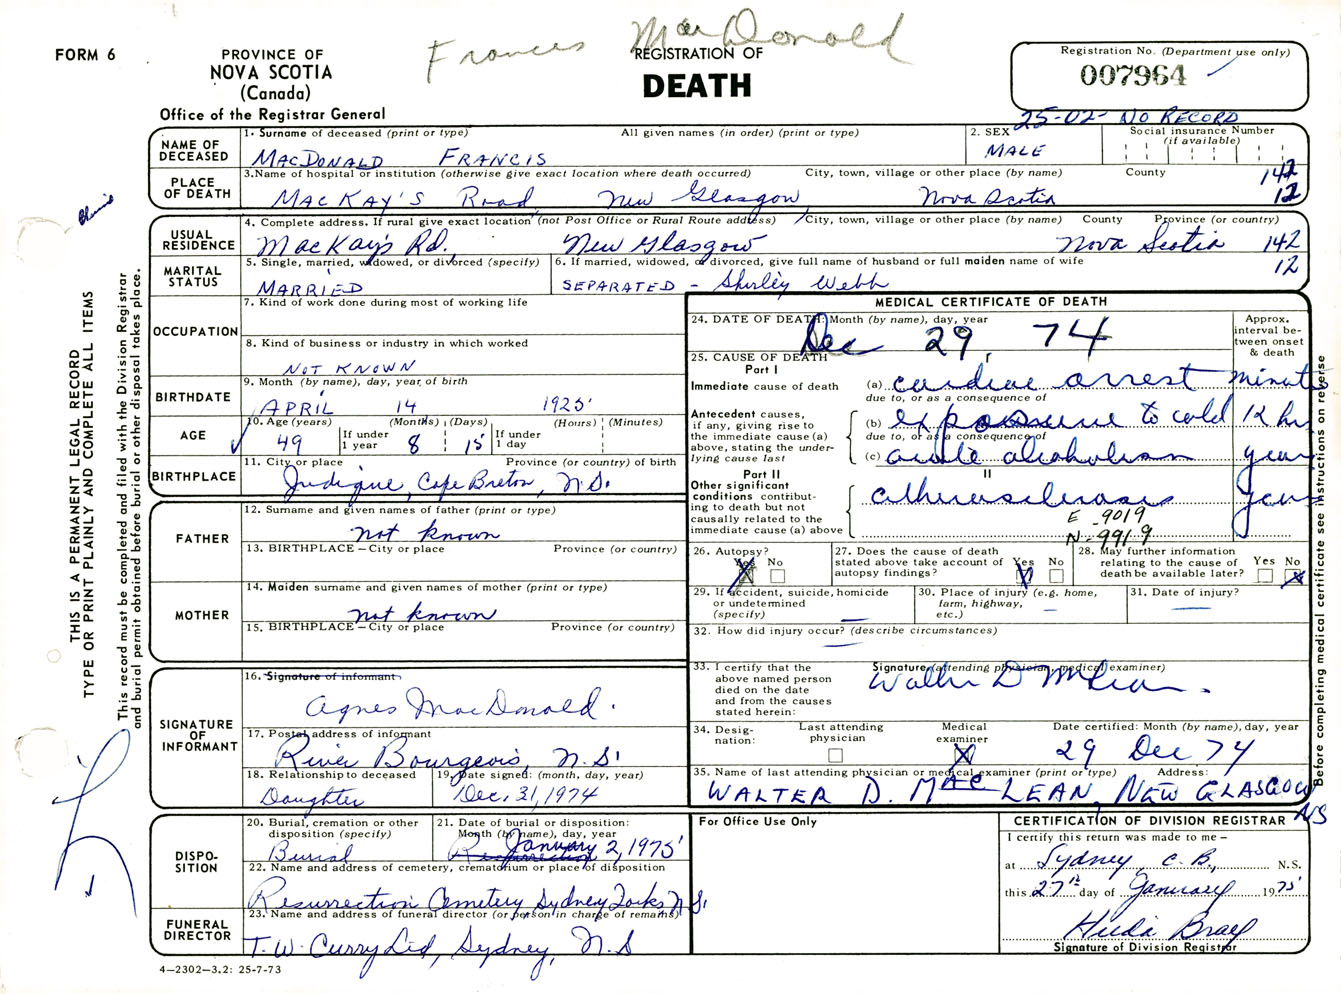 Frances MacDonald
FORM 6
PROVINCE OF
NOVA SCOTIA
(Canada)
Office of the Registrar General
REGISTRATION OF
DEATH
Registration No. (Department use only)
007964
25-02- NO RECORD
NAME OF
DECEASED
1. Surname of deceased (print or type) All given names (in order) (print or type)
MACDONALD FRANCIS
2. SEX
MALE
Social insurance Number
(if available)
PLACE
OF DEATH
3. Name of hospital or institution (otherwise give exact location where death occurred) City, town, village or other place (by name) County
MACKAY'S Road New Glasgow Nova Scotia
142
12
USUAL
RESIDENCE
4. Complete address. If rural give exact location (not Post Office or Rural Route address) City, town, village or other place (by name) County Province (or country)
MacKay's Rd. New Glasgow Nova Scotia 142
12
MARITAL
STATUS
5. Single, married, widowed, or divorced (specify)
MARRIED
6. If married, widowed, or divorced, give full name of husband or full maiden name of wife
SEPARATED - Shirley Webb
OCCUPATION
7. Kind of work done during most of working life
8. Kind of business or industry in which worked
NOT KNOWN
BIRTHDATE
9. Month (by name), day, year of birth
APRIL 14 1925
AGE
10. Age (years) (Months) (Days) (Hours) (Minutes)
49 If under 1 year 8 15 If under 1 day
BIRTHPLACE
11. City or place Province (or country) of birth
Judique, Cape Breton, N.S.
FATHER
12. Surname and given names of father (print or type)
not known
13. BIRTHPLACE – City or place Province (or country)
MOTHER
14. Maiden surname and given names of mother (print or type)
not known
15. BIRTHPLACE – City or place Province (or country)
SIGNATURE
OF
INFORMANT
16. Signature of informant
Agnes MacDonald.
17. Postal address of informant
River Bourgeois, N.S.
18. Relationship to deceased
Daughter
19. Date signed: (month, day, year)
Dec. 31, 1974
DISPO-
SITION
20. Burial, cremation or other
disposition (specify)
Burial
21. Date of burial or disposition:
Month (by name), day, year
January 2, 1975
22. Name and address of cemetery, crematorium or place of disposition
Resurrection Cemetery Sydney Forks N.S.
FUNERAL
DIRECTOR
23. Name and address of funeral director (or person in charge of remains)
T.W. Curry Ltd, Sydney, N.S
4–2302–3.2: 25-7-73
MEDICAL CERTIFICATE OF DEATH
24. DATE OF DEATH: Month (by name), day, year
Dec 29, 74
Approx.
interval be-
tween onset
& death
25. CAUSE OF DEATH
Part I
Immediate cause of death (a) cardiac arrest minutes
due to, or as a consequence of
Antecedent causes,
if any, giving rise to
the immediate cause (a)
above, stating the under-
lying cause last
(b) exposure to cold 12 hrs
due to, or as a consequence of
(c) acute alcoholism years
Part II
Other significant
conditions contribut-
ing to death but not
causally related to the
immediate cause (a) above
II
atherosclerosis years
E -9019
N-9919
26. Autopsy?
Yes No
27. Does the cause of death
stated above take account of
autopsy findings?
Yes No
28. May further information
relating to the cause of
death be available later?
Yes No
29. If accident, suicide, homicide
or undetermined
(specify)
30. Place of injury (e.g. home,
farm, highway,
etc.)
31. Date of injury?
32. How did injury occur? (describe circumstances)
33. I certify that the
above named person
died on the date
and from the causes
stated herein:
Signature (attending physician, medical examiner)
Walter D McLean.
34. Desig-
nation:
Last attending
physician
Medical
examiner
Date certified: Month (by name), day, year
29 Dec 74
35. Name of last attending physician or medical examiner (print or type) Address:
WALTER D. MACLEAN, NEW GLASGOW NS
For Office Use Only
CERTIFICATION OF DIVISION REGISTRAR
I certify this return was made to me –
at Sydney, C.B., N.S.
this 27th day of January 1975
Signature of Division Registrar
THIS IS A PERMANENT LEGAL RECORD
TYPE OR PRINT PLAINLY AND COMPLETE ALL ITEMS
This record must be completed and filed with the Division Registrar
and burial permit obtained before burial or other disposal takes place.
Before completing medical certificate see instructions on reverse